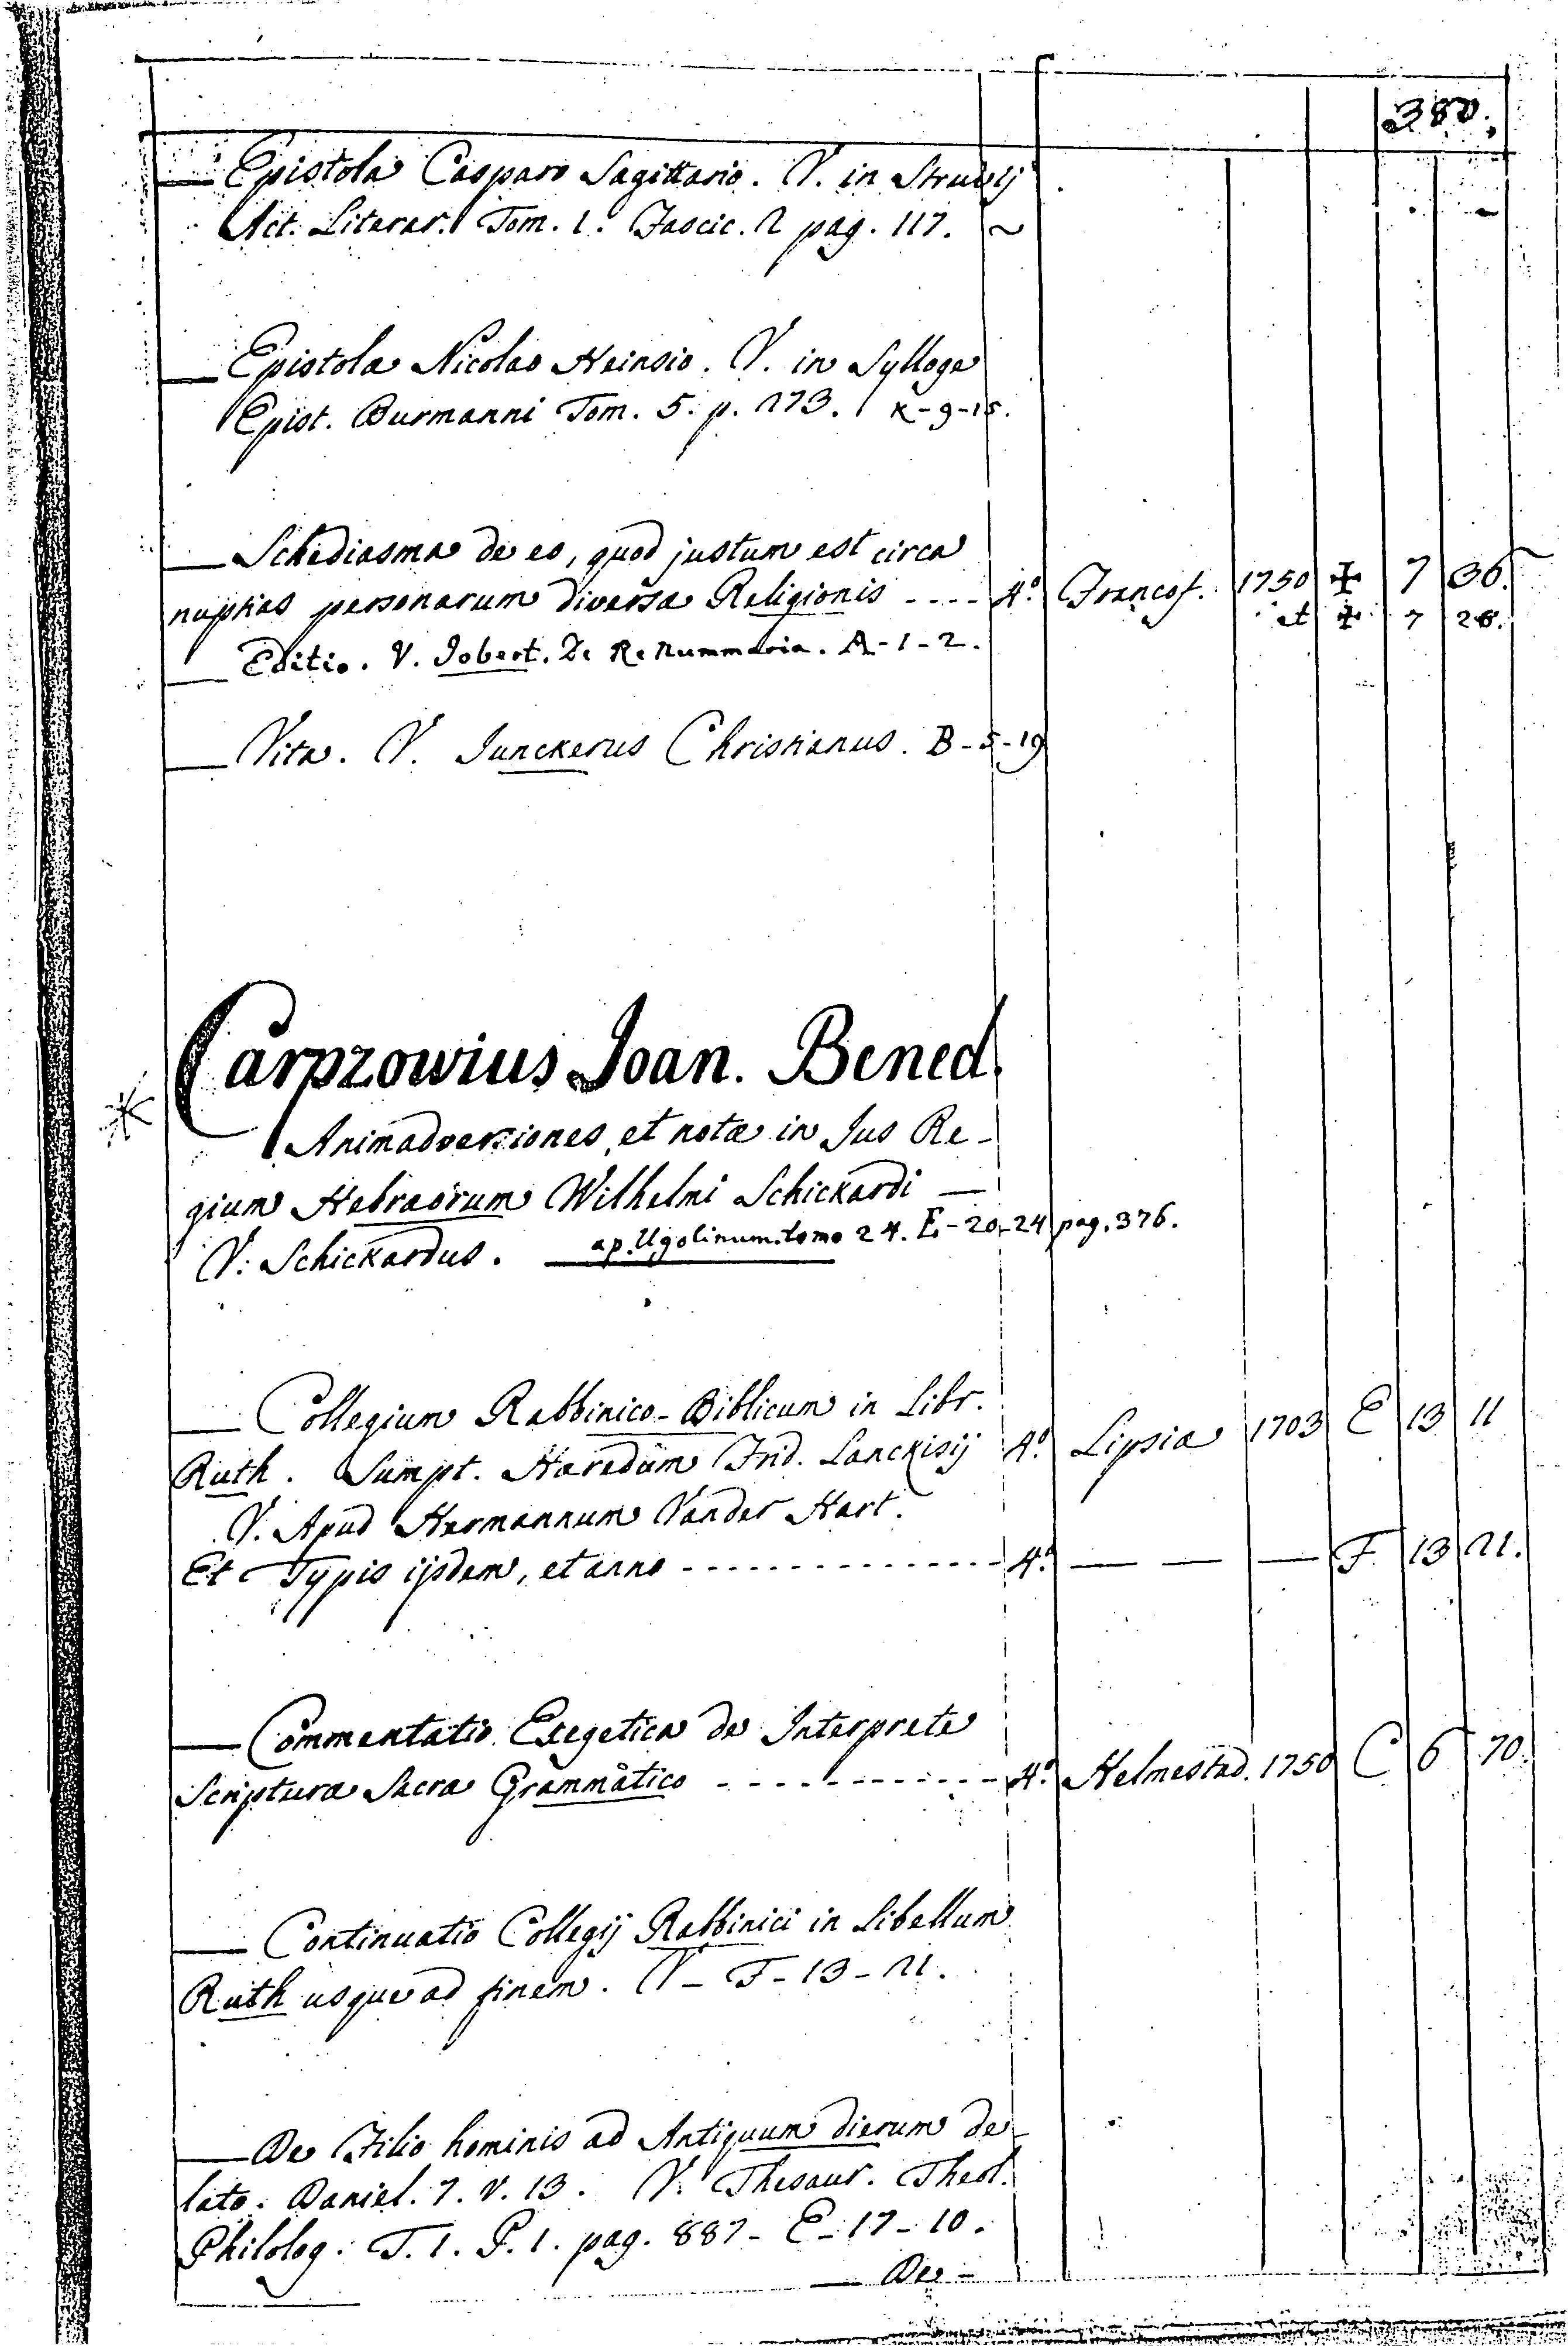 380.
— Epistola Casparo Sagittario. V. in Struvij
Act. Literar. Tom. 1. Fascic. 2 pag. 117. ~
— Epistola Nicolao Heinsio. V. in Sylloge
Epist. Burmanni Tom. 5. p. 273. K-9-15.
— Schediasma de eo, quod justum est circa
nuptias personarum diversæ Religionis ---- 4.º Francof. 1750 ✠ 7 36.
et ✠ 7 28.
— Editio. V. Jobert. De Re Nummaria. A-1-2.
— Vita. V. Junckerus Christianus. B-5-19
Carpzowius Joan. Bened.
* Animadversiones, et notæ in Jus Re-
gium Hebræorum Wilhelmi Schickardi —
V. Schickardus. ap. Ugolinum. tomo 24. E-20-24 pag. 376.
— Collegium Rabbinico-Biblicum in Libr.
Ruth. Sumpt. Hæredum Frid. Lanckisij 4.º Lipsiæ 1703 E 13 11
V. Apud Hermannum Vander Hart.
Et Typis ijsdem, et anno --------------- 4.º — — — F 13 21.
— Commentatio Exegetica de Interprete
Scripturæ Sacræ Grammatico ------------ 4.º Helmestad. 1750 C 6 70.
— Continuatio Collegij Rabbinici in Libellum
Ruth usque ad finem. V - F-13-21.
— De Filio hominis ad Antiquum dierum de-
lato. Daniel. 7. v. 13. V. Thesaur. Theol.
Philolog. T. 1. P. 1. pag. 887- E-17-10.
— De -